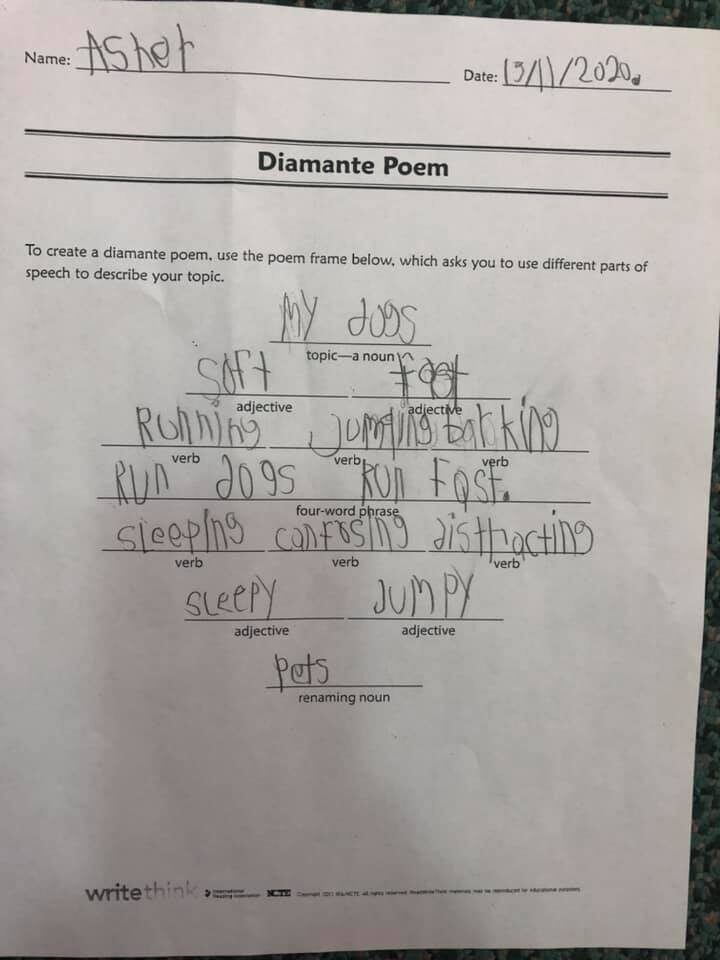 Name: Asher
Date: 13/11/2020.
Diamante Poem
To create a diamante poem, use the poem frame below, which asks you to use different parts of
speech to describe your topic.
My dogs
topic—a noun
Soft Fast
adjective adjective
Running Jumping barking
verb verb verb
Run dogs Run Fast.
four-word phrase
sleeping confosing distracting
verb verb verb
sleepy Jumpy
adjective adjective
pets
renaming noun
writethink International Reading Association NCTE